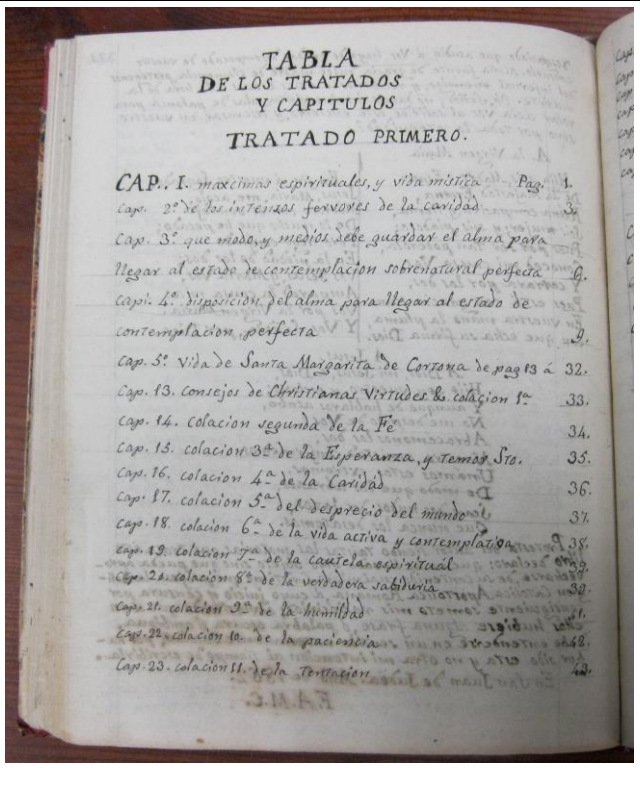 TABLA
DE LOS TRATADOS
Y CAPITULOS
TRATADO PRIMERO.
CAP. I. maxcimas espirituales, y vida mistica Pag. 1.
Cap. 2º de los intensos fervores de la caridad 3.
Cap. 3º que modo, y medios debe guardar el alma para
llegar al estado de contemplacion sobrenatural perfecta 6.
Capi. 4º disposicion del alma para llegar al estado de
contemplacion perfecta 9.
Cap. 5º Vida de Santa Margarita de Cortona de pag 13 á 32.
Cap. 13. Consejos de Christianas Virtudes & colacion 1ª 33.
Cap. 14. colacion segunda de la Fé 34.
Cap. 15. colacion 3ª de la Esperanza, y temor Sto. 35.
Cap. 16. colacion 4ª de la Caridad 36.
Cap. 17. colacion 5ª del desprecio del mundo 37.
Cap. 18. colacion 6ª de la vida activa y contemplativa 38.
Cap. 19. colacion 7ª de la cautela espiritual
Cap. 20. colacion 8ª de la verdadera sabiduria
Cap. 21. colacion 9ª de la humildad
Cap. 22. colacion 10. de la paciencia
Cap. 23. colacion 11. de la Tentacion